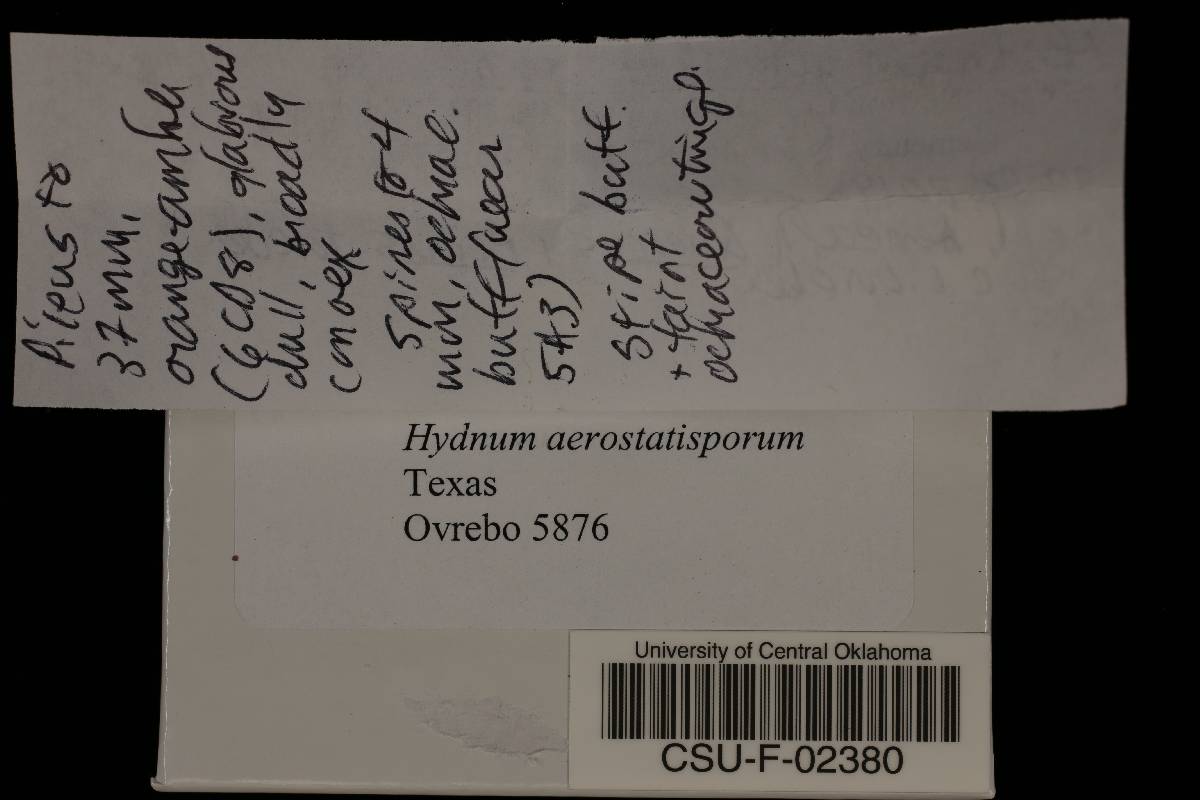 Pileus to
37 mm,
orange-amber
(6CD8), glabrous
dull, broadly
convex
Spines to 4
mm, ochrac.
buff (near
5A3)
Stipe buff
+ faint
ochraceous tinge.
Hydnum aerostatisporum
Texas
Ovrebo 5876
University of Central Oklahoma
CSU-F-02380